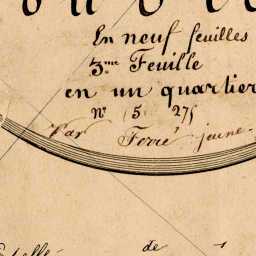 En neuf feuilles
3.me Feuille
en un quartier
N° (5 27)
Par Ferré jeune.
de